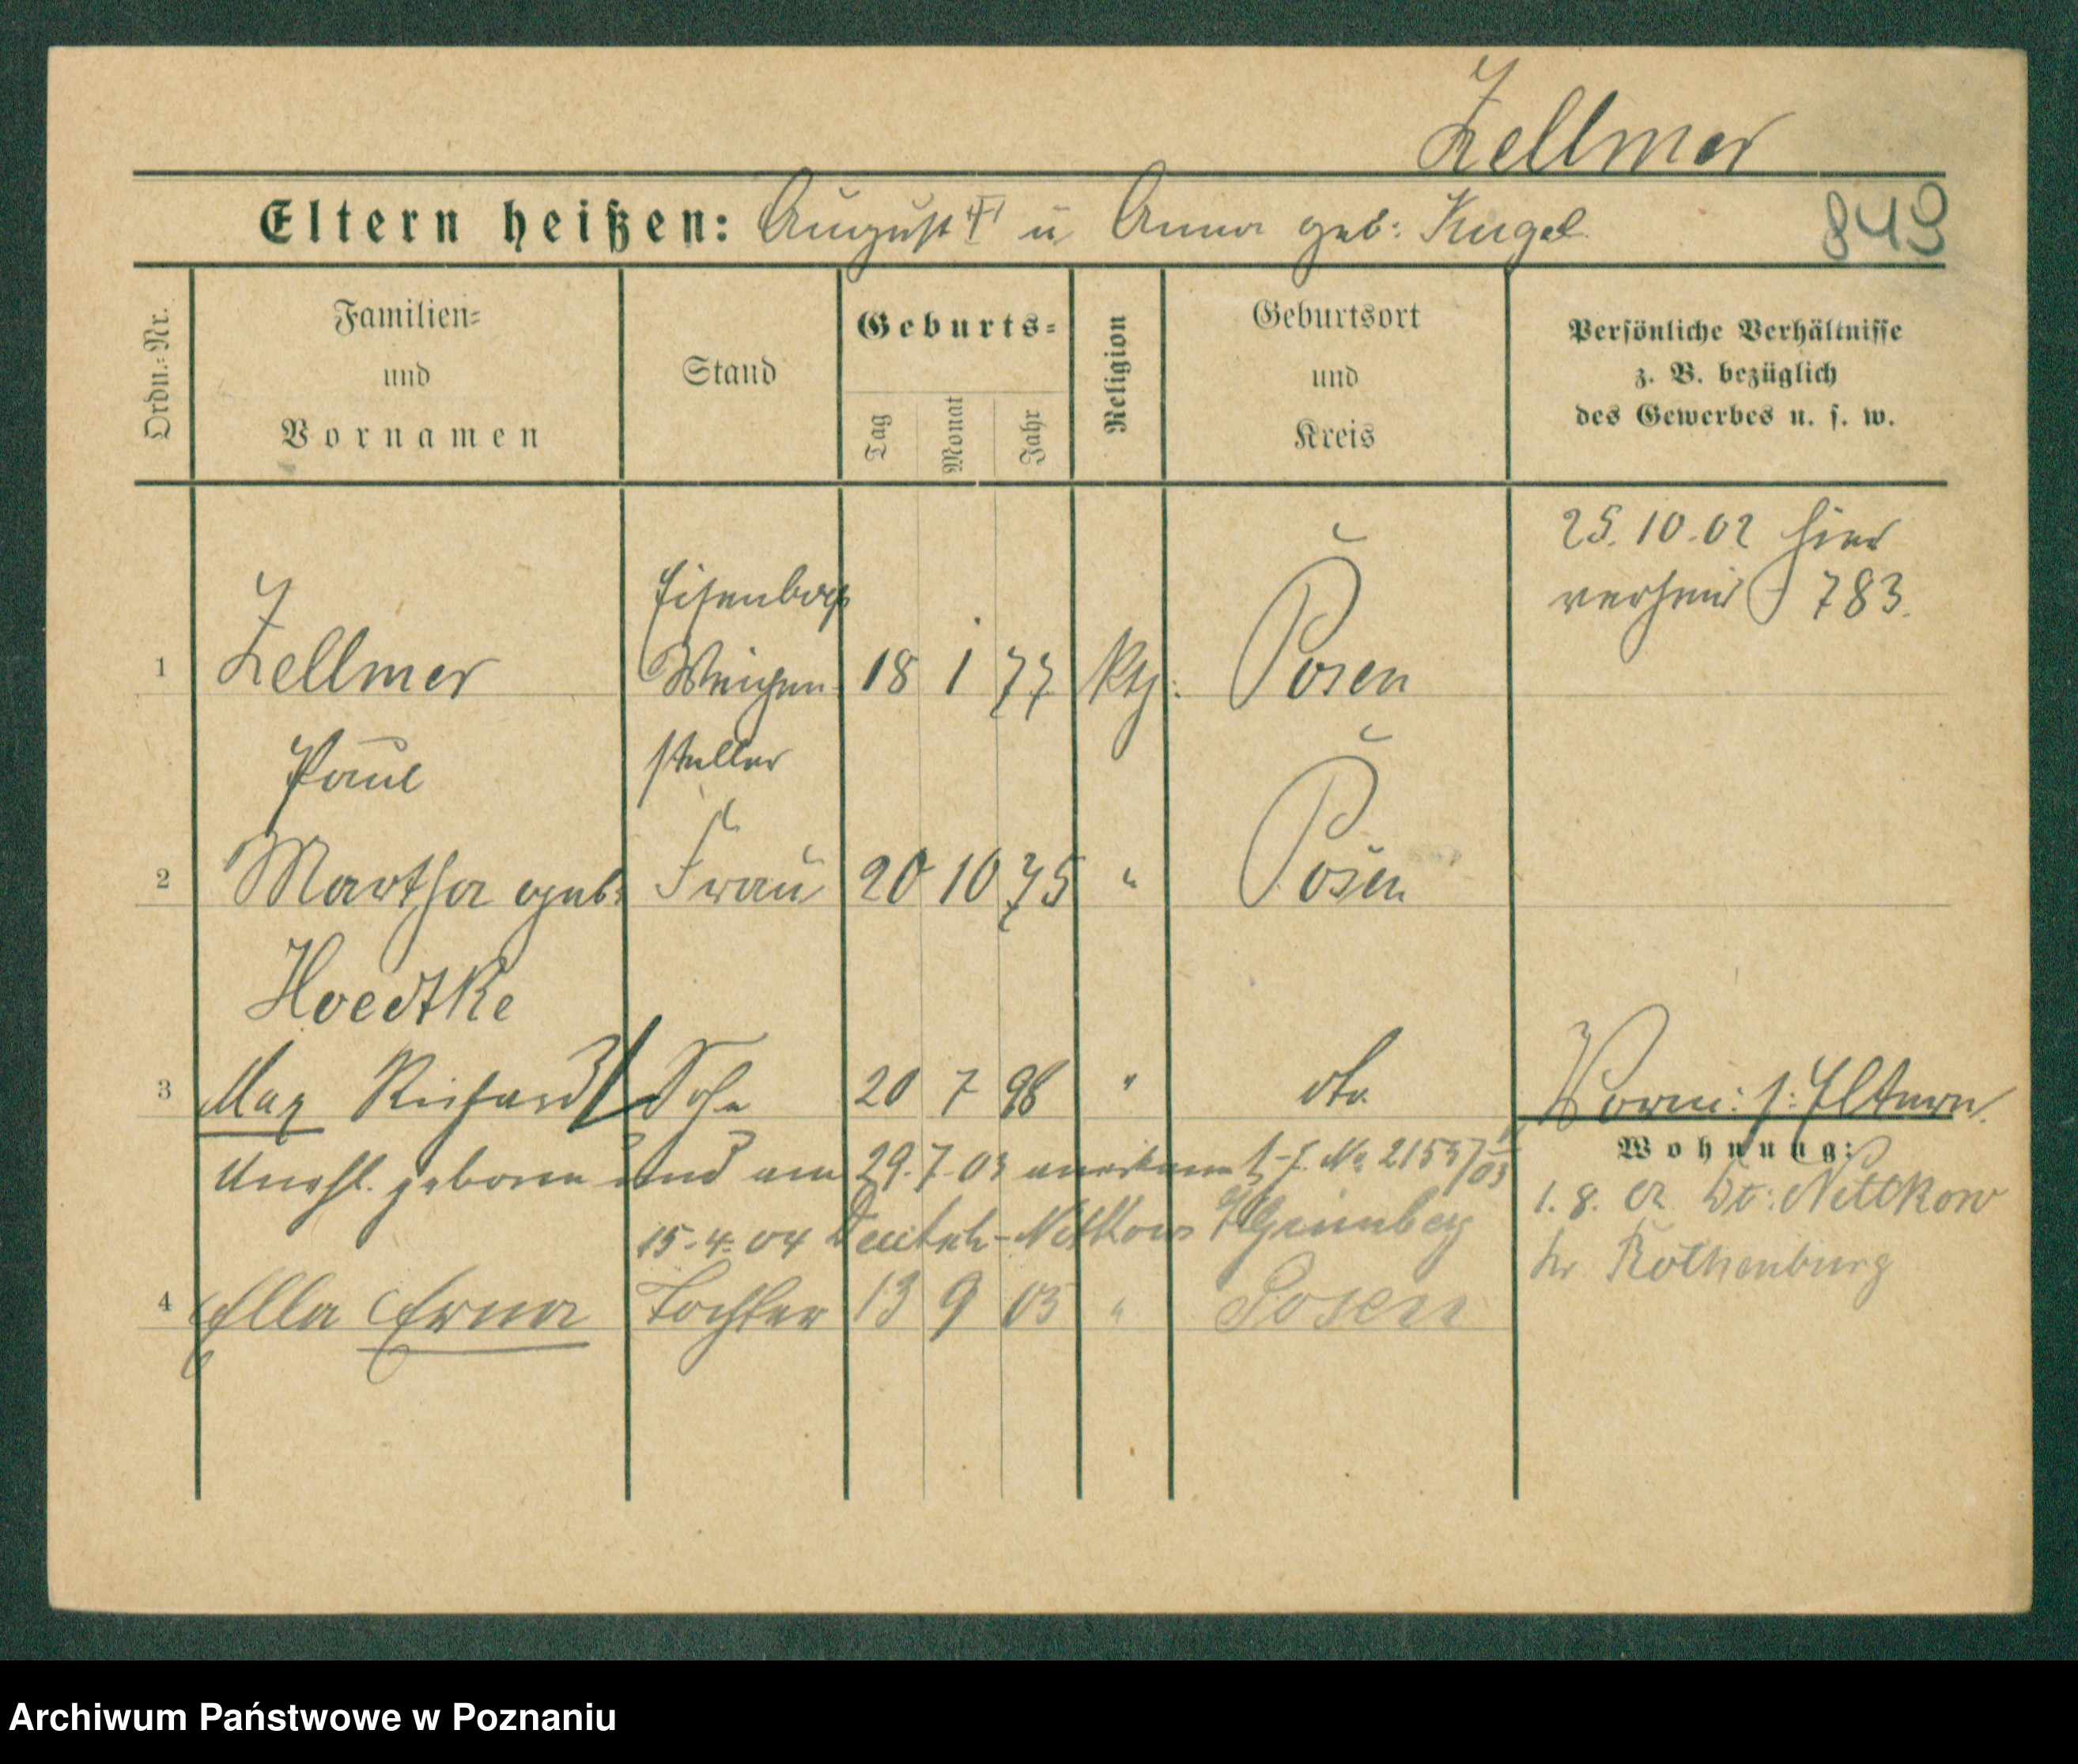 Zellmer
Eltern heißen: August u Anna geb: Kugel
849
Ordn.=Nr.
Familien=
und
Vornamen
Stand
Geburts=
Tag
Monat
Jahr
Religion
Geburtsort
und
Kreis
Persönliche Verhältnisse
z. B. bezüglich
des Gewerbes u. s. w.
25.10.02 hier
783.
1 Zellmer Weichen 18 1 77 Posen
Paul steller
2 Martha geb: Frau 20 10 75 " Posen
Hoedtke
3 Max Richard Sohn 20 7 98 " dto.
Unehl. geboren und am 29.7.03 anerkannt
15.4.04 Deutsch-Nettkow Grünberg
4 Ella Erna Tochter 13 9 03 " Posen
Vorm: s: Eltern.
Wohnung:
1.8. Dt: Nettkow
Kr Rothenburg
Archiwum Państwowe w Poznaniu